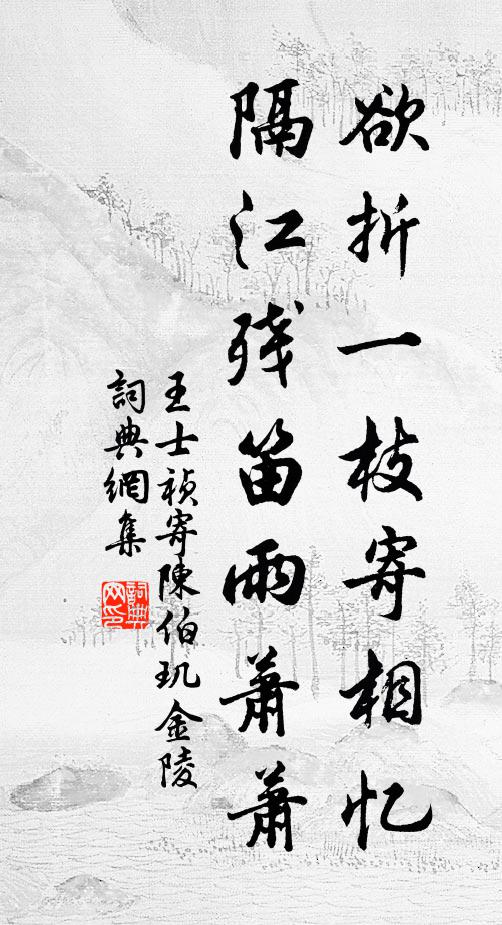 欲折一枝寄相忆
隔江残笛雨蕭蕭
王士禎寄陳伯玑金陵
詞典網集
詞典网印